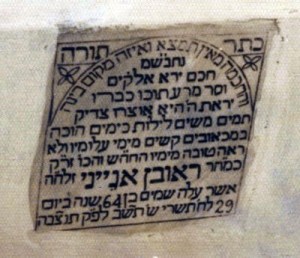 כתר תורה
והחכמה מאין תמצא ואיזה מקום בינה
חכם ירא אלקים
וסר מרע תוכו כברו
יראת ה' היא אוצרו צדיק
תמים משים לילות כימים הוכה
במכאובים קשים מימי עלומיו ולא
ראה טובה מימיו
כמהר ראובן אנייני זלהה
אשר עלה שמים בן 64 שנה ביום
29 לח' תשרי ש' תשב לפק תנצבה